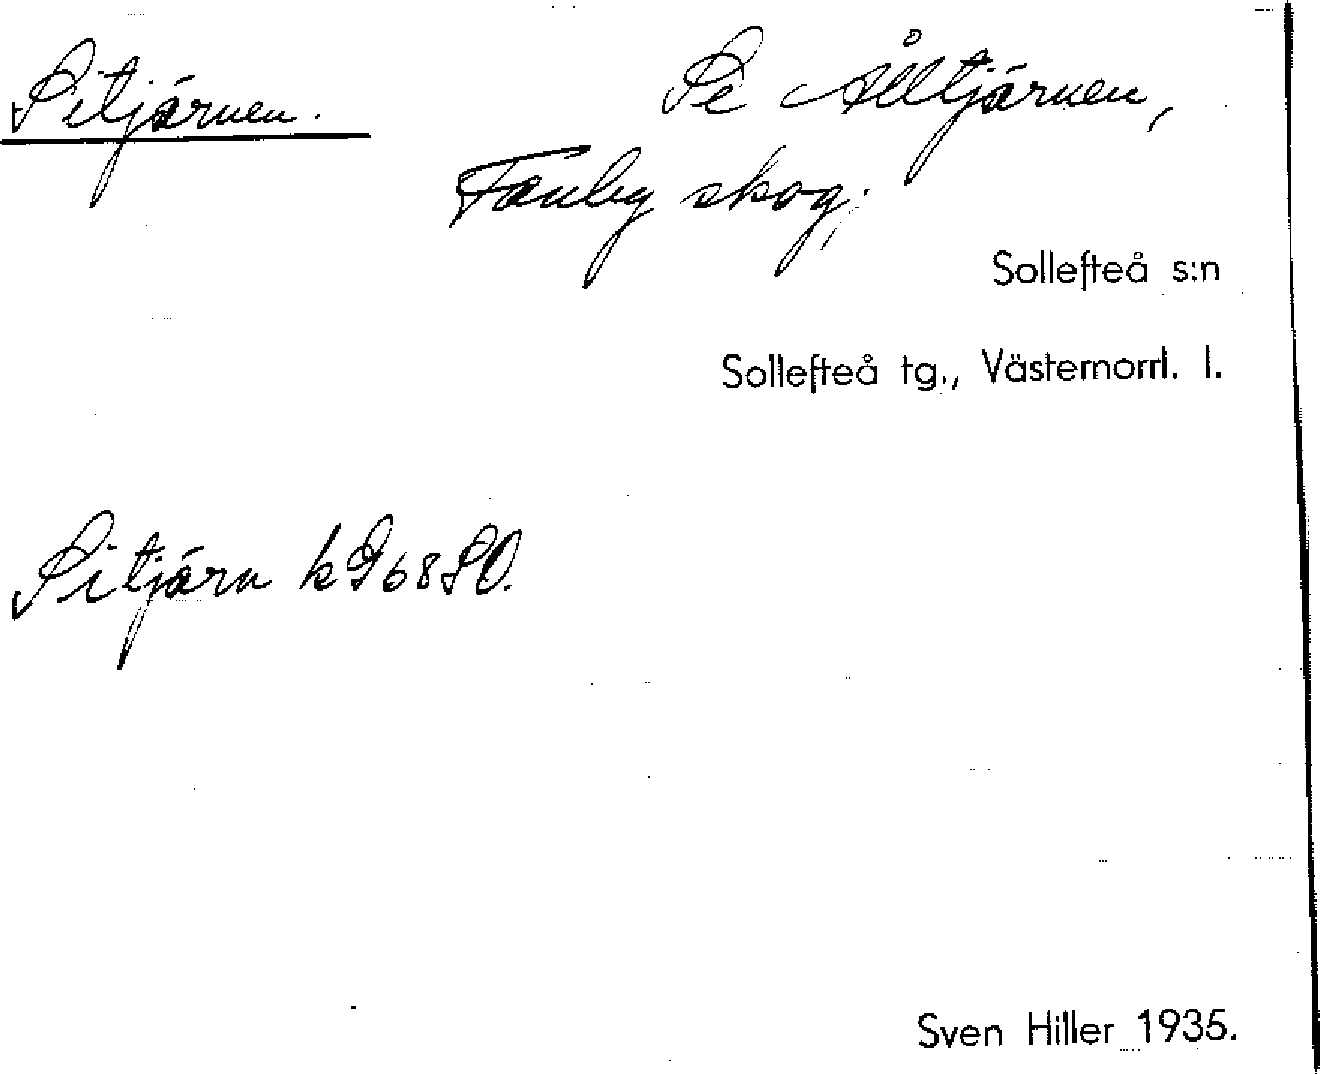 Pitjärnen.
Se Ålltjärnen,
Fanby skog,
Sollefteå s:n
Sollefteå tg., Västernorrl. l.
Pitjärn k968SO.
Sven Hiller 1935.